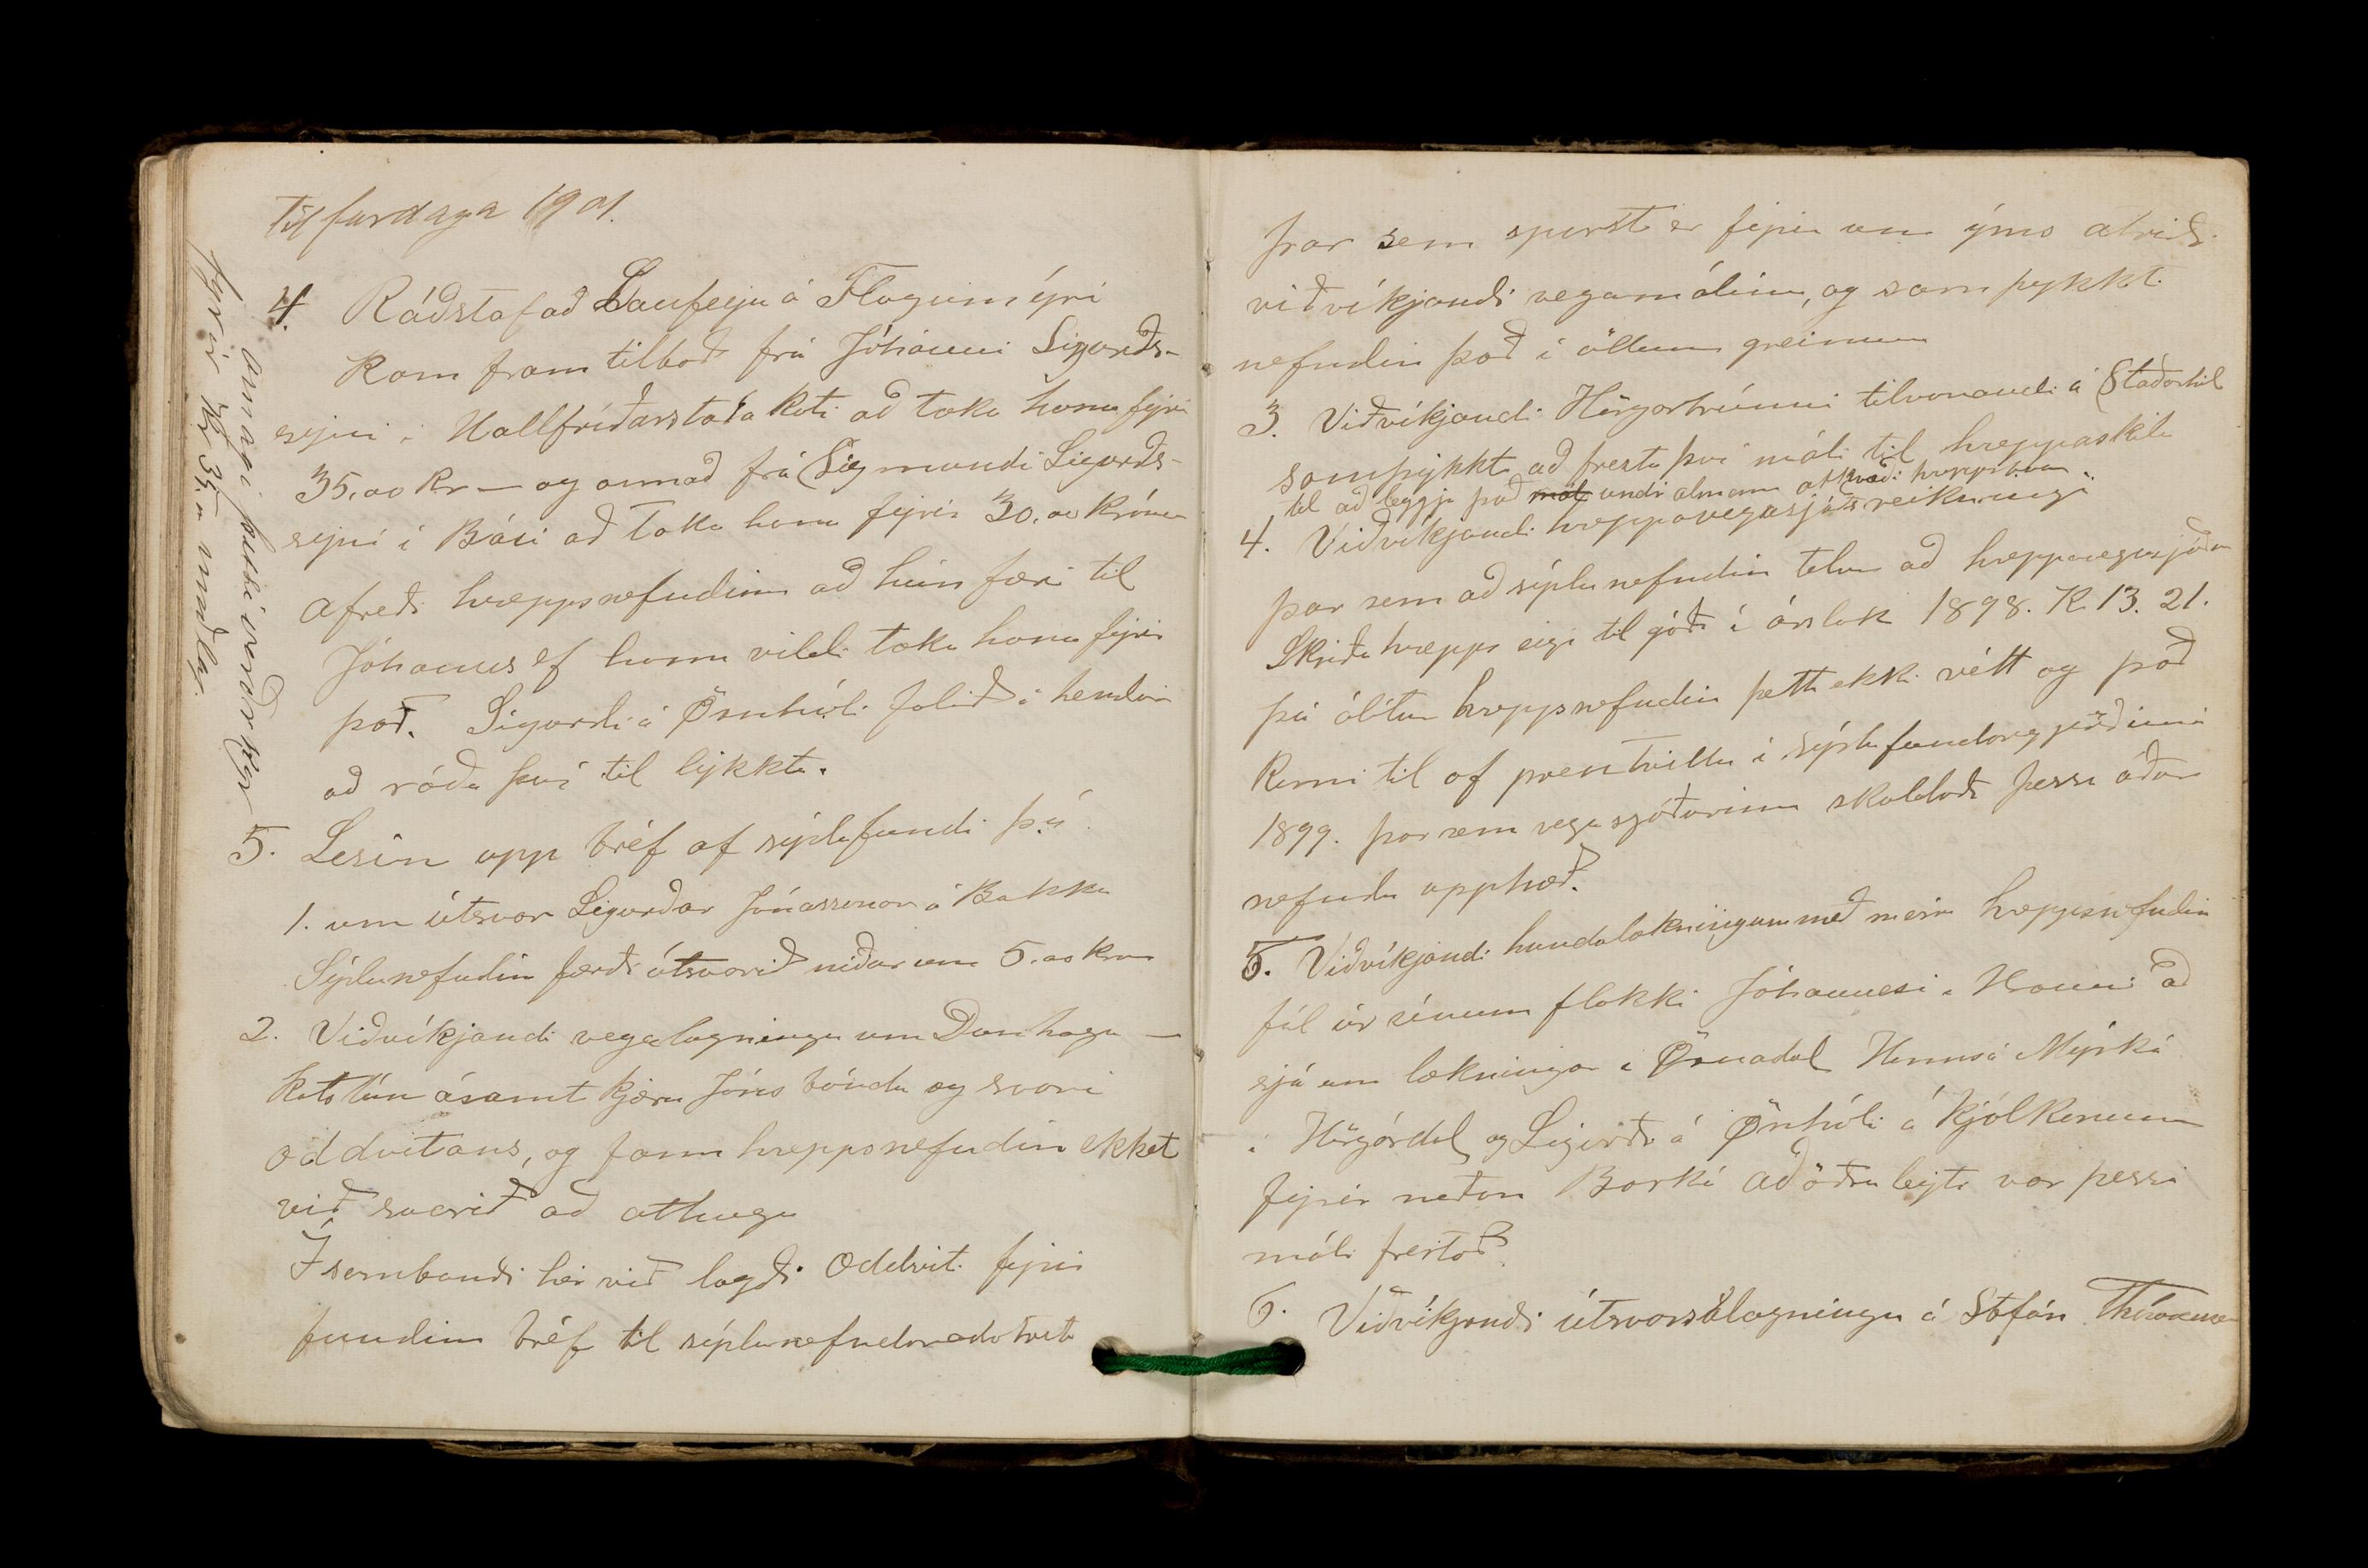 Til fardaga 1901.
4. Ráðstafað Laufeyju á Flögumýri
Kom fram tilboð frá Jóhanni Sigurðs-
syni í Hallfríðarstaða koti að taka hana fyrir
35,00 kr — og annað frá Sigmundi Sigurðs-
syni í Bási að taka hana fyrir 30,00 krónur
afréði hreppsnefndinn að hún færi til
Jóhanns ef hann vildi taka hana fyrir
það. Sigurði á Öxnhóli falið á hendur
að ráða því til lykkta.
5. Lesin upp bréf af sýslufundi þ.á.
1. um útsvar Sigurðar Jónassonar á Bakka
Sýslunefndin færði útsvarið niður um 5.00 kron
2. Viðvíkjandi vegalagningu um Dunhaga —
kots tún ásamt kjæru Jóns bónda og svari
oddvitans, og fann hreppsnefndin ekket
við svarið að athuga
Í sambandi hér við lagði Oddvit. fyrir
fundinn bréf til sýslunefndar
fyrir kr 35. meðlag.
þar sem spurst er fyrir um ýms atriði
viðvíkjandi vegamálinu, og samþykkt
nefndin það í öllum greinum
3. Viðvíkjandi Hörgárbrúnni tilvonandi á Staðarhil
samþykkt að fresta því máli til hreppaskila
til að leggja það mál undir almenn atkvæði hreppsbúa.
4. Viðvíkjandi hreppavegasjóðsreikningi
þar sem að sýslunefndin telur að hreppavegasjóður
Skriðuhrepps eigi til góða í árslok 1898. K. 13. 21.
þá álítur hreppsnefndin þetta ekki rétt og það
komi til af prentvillu í sýslufundargjörðinni
1899. þar sem vegasjóðurinn skuldaði þessa áður
nefnda upphæð.
5. Viðvíkjandi hundalækningum með meiru hreppsnefndin
fól úr sínum flokki Jóhannesi á Hrauni að
sjá um lækningar í Öxnadal Hannsi Mýrká
í Hörgárdal og Sigurði á Öxnhóli á Þjólkunum
fyrir neðan Barká að öðru leyti var þessu
máli frestað.
6. Viðvíkjandi útsvarsálagningu á Stefán